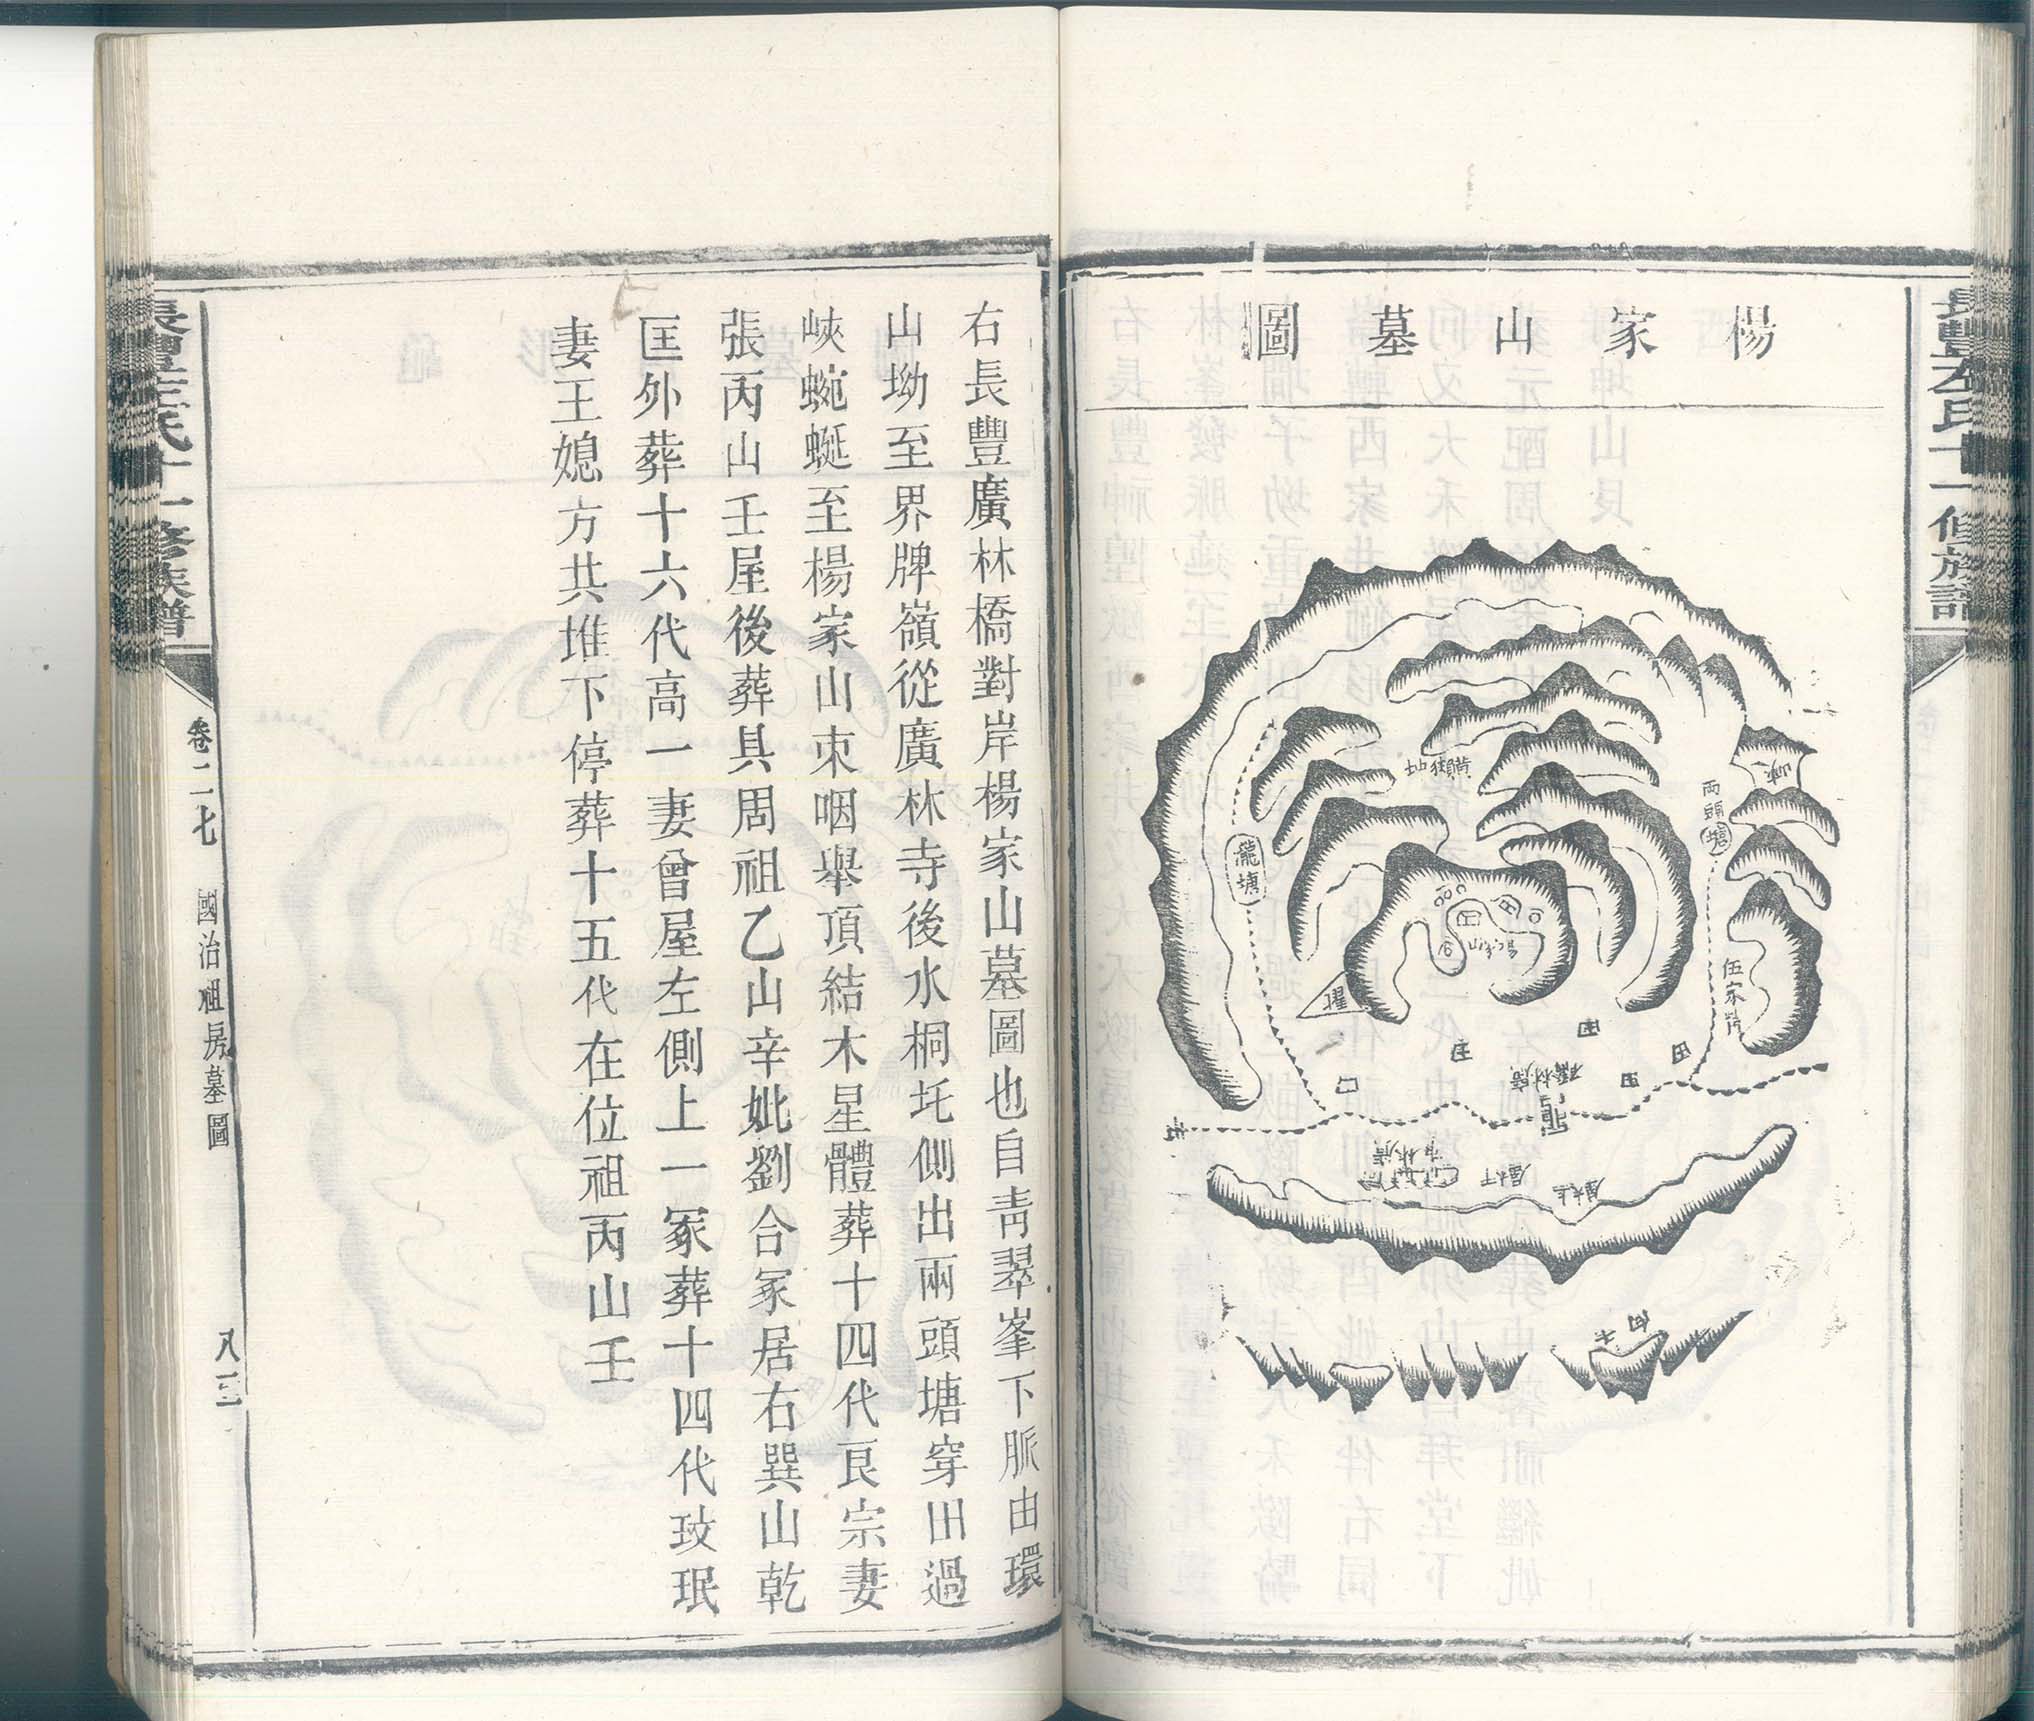 長豐左氏十一修族譜
楊家山墓圖
峽
兩頭塘
龍塘
伍家灣
曜
楊家山
廣林橋
右長豐廣林橋對岸楊家山墓圖也自青翠峯下脈由環
山坳至界牌嶺從廣林寺後水桐圫側出兩頭塘穿田過
峽蜿蜒至楊家山束咽舉頂結木星體葬十四代艮宗妻
張丙山壬屋後葬具周祖乙山辛妣劉合冢居右巽山乾
匡外葬十六代高一妻曾屋左側上一冢葬十四代玟珉
妻王媳方共堆下停葬十五代在位祖丙山壬
長豐左氏十一修族譜
卷二七
國治祖房墓圖
八三